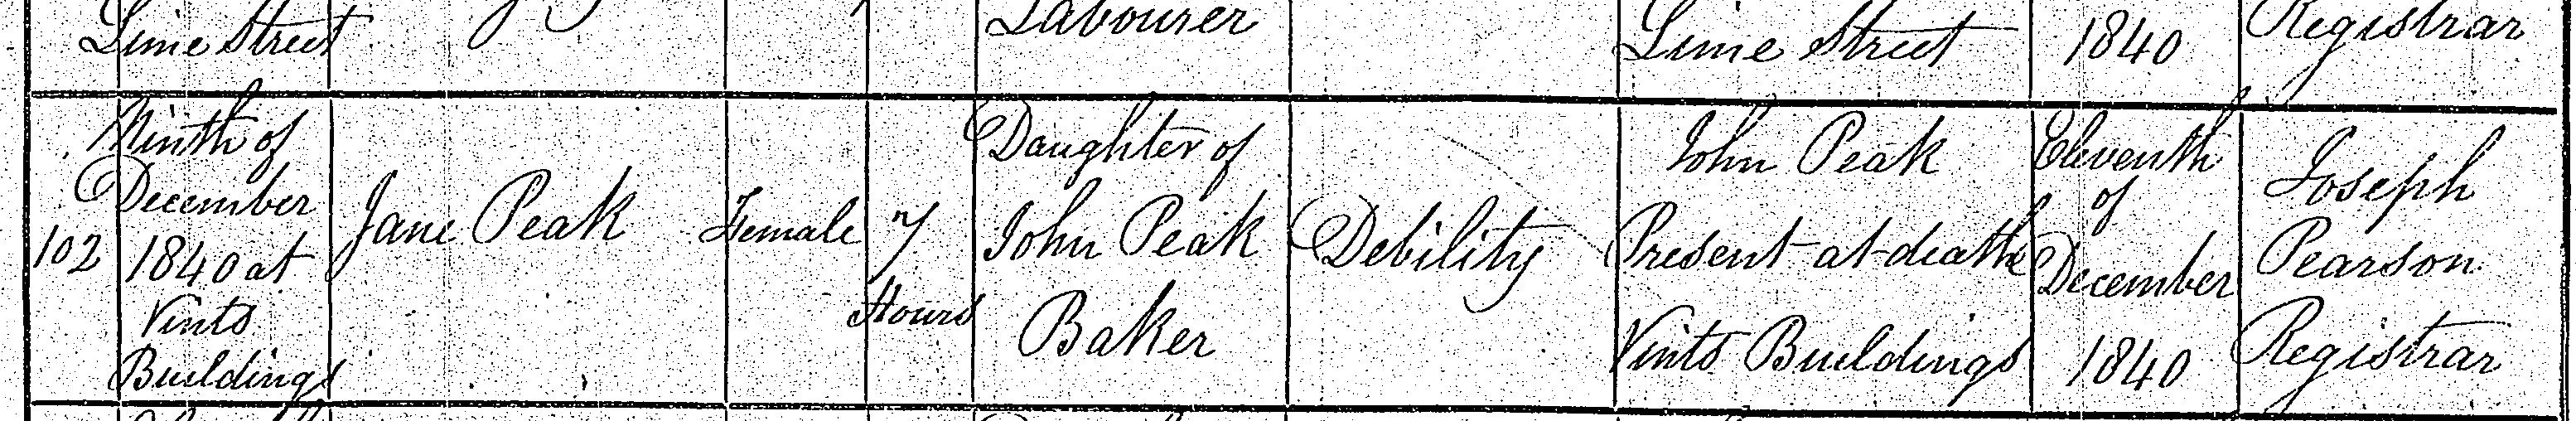 Lime Street
Labourer
Lime Street
1840
Registrar
102
Ninth of
December
1840 at
Vints
Buildings
Jane Peak
Female
7
Hours
Daughter of
John Peak
Baker
Debility
John Peak
Present at death
Vints Buildings
Eleventh
of
December
1840
Joseph
Pearson
Registrar